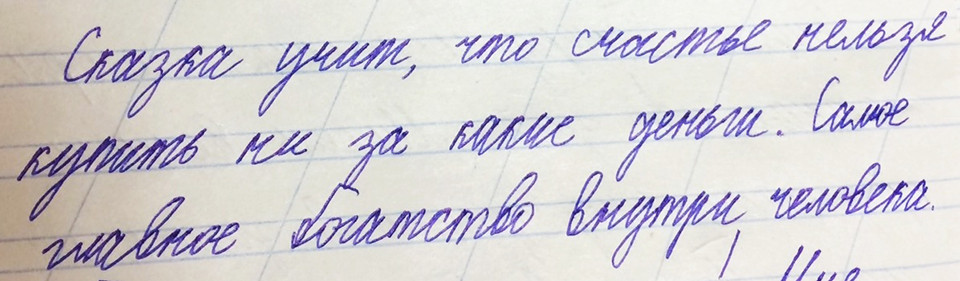 Сказка учит, что счастье нельзя
купить ни за какие деньги. Самое
главное богатство внутри человека.